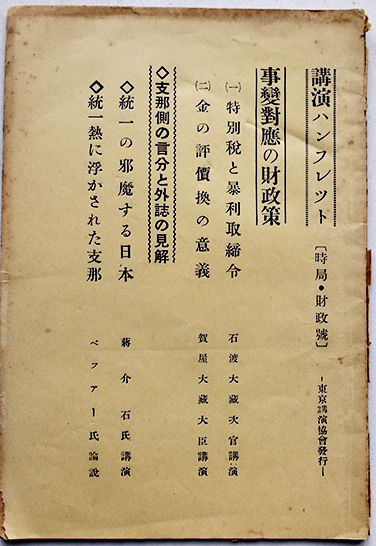 講演ハンフレツト
〔時局・財政號〕
―東京講演協會發行―
事變對應の財政策
㈠特別税と暴利取締令
石渡大藏次官講演
㈡金の評價換の意義
賀屋大藏大臣講演
◇支那側の言分と外誌の見解
◇統一の邪魔する日本
蔣介石氏講演
◇統一熱に浮かされた支那
ペフアー氏論說